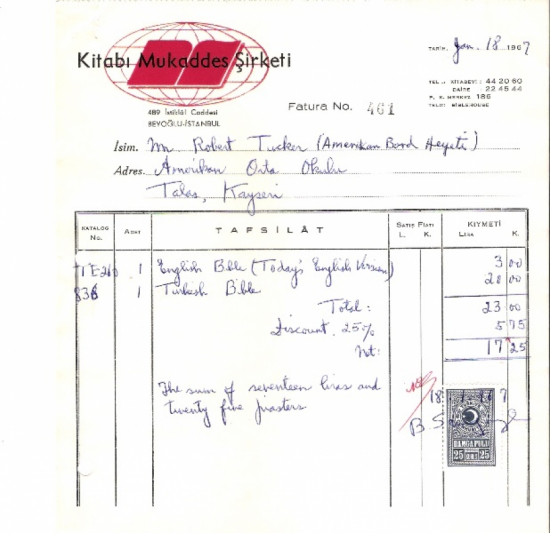 Kitabı Mukaddes Şirketi
TARİH, Jan. 18 1967
TEL.: KİTABEVİ: 44 20 60
DAİRE 22 45 44
P. K. MERKEZ 186
TELG: BIBLEHOUSE
489 İstiklâl Caddesi
BEYOĞLU-İSTANBUL
Fatura No. 461
İsim. Mr. Robert Tucker (Amerikan Bord Heyeti)
Adres. Amerikan Orta Okulu
Talas, Kayseri
KATALOG No. ADET TAFSİLÂT SATIŞ FİATI L. K. KIYMETİ LİRA K.
1 English Bible (Today's English Version) 3 00
836 1 Turkish Bible 20 00
Total: 23 00
Discount, 25% 5 75
Net: 17 25
The sum of seventeen liras and
twenty five piasters
DAMGA PULU
25 25